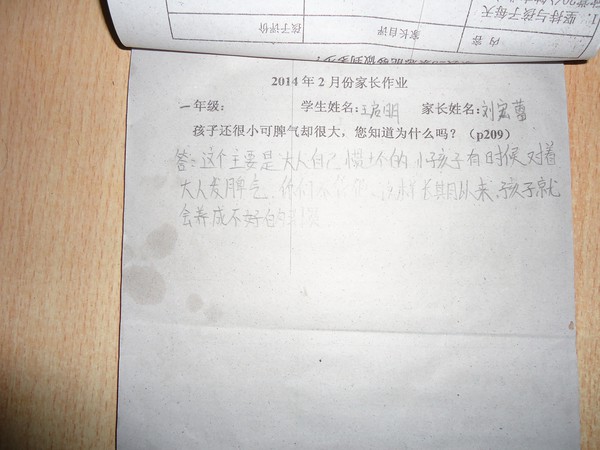 1. 坚持与孩子每天
内 容
家长自评
孩子评价
2014 年 2 月份家长作业
一年级: 学生姓名: 王启明 家长姓名: 刘
孩子还很小可脾气却很大，您知道为什么吗？（p209）
答:这个主要是大人自己惯坏的,小孩子有时候对着
大人发脾气,你们 这样长期以来,孩子就
会养成不好的习惯